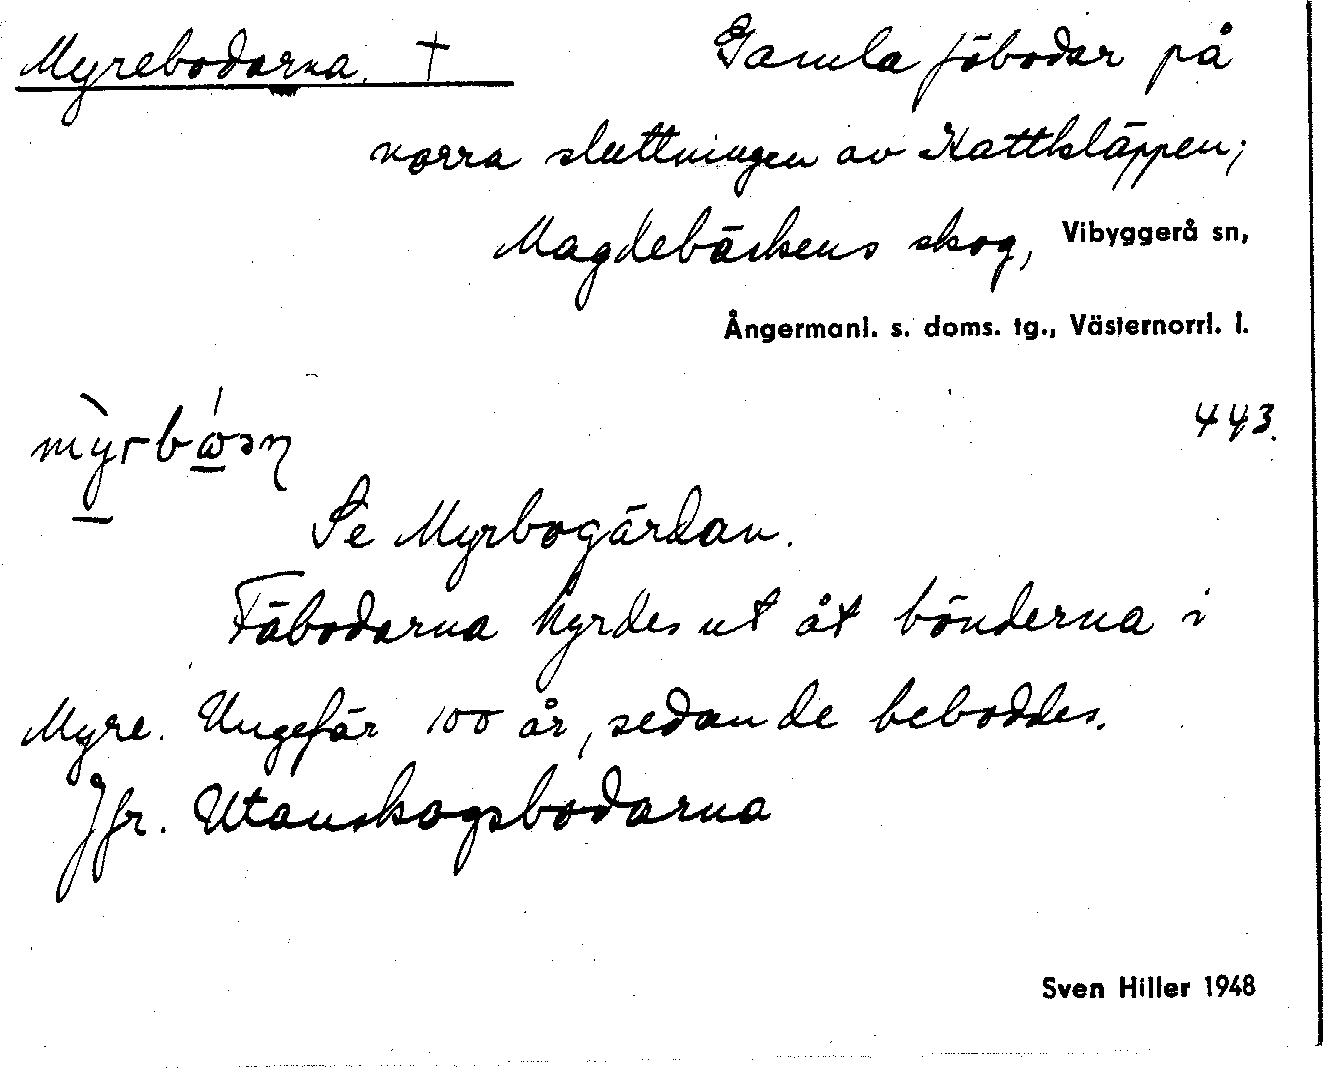 Myrebodarna. † Gamla fäbodar på
norra sluttningen av Kattkläppen;
Magdebäckens skog, Vibyggerå sn,
Ångermanl. s. doms. tg., Västernorrl. l.
443.
Se Myrbogärdan.
Fäbodarna hyrdes ut åt bönderna i
Myre. Ungefär 100 år, sedan de beboddes.
Jfr. Utanskogsbodarna
Sven Hiller 1948